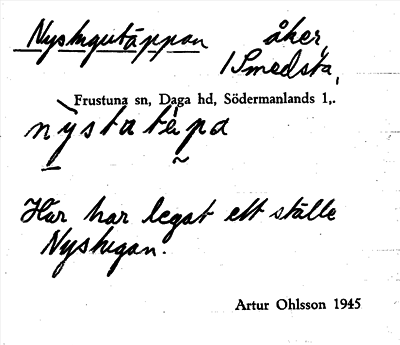 Nystugutäppan åker,
1 Smedsta,
Frustuna sn, Daga hd, Södermanlands l,.
nystatepa
Här har legat ett ställe
Nystugan.
Artur Ohlsson 1945